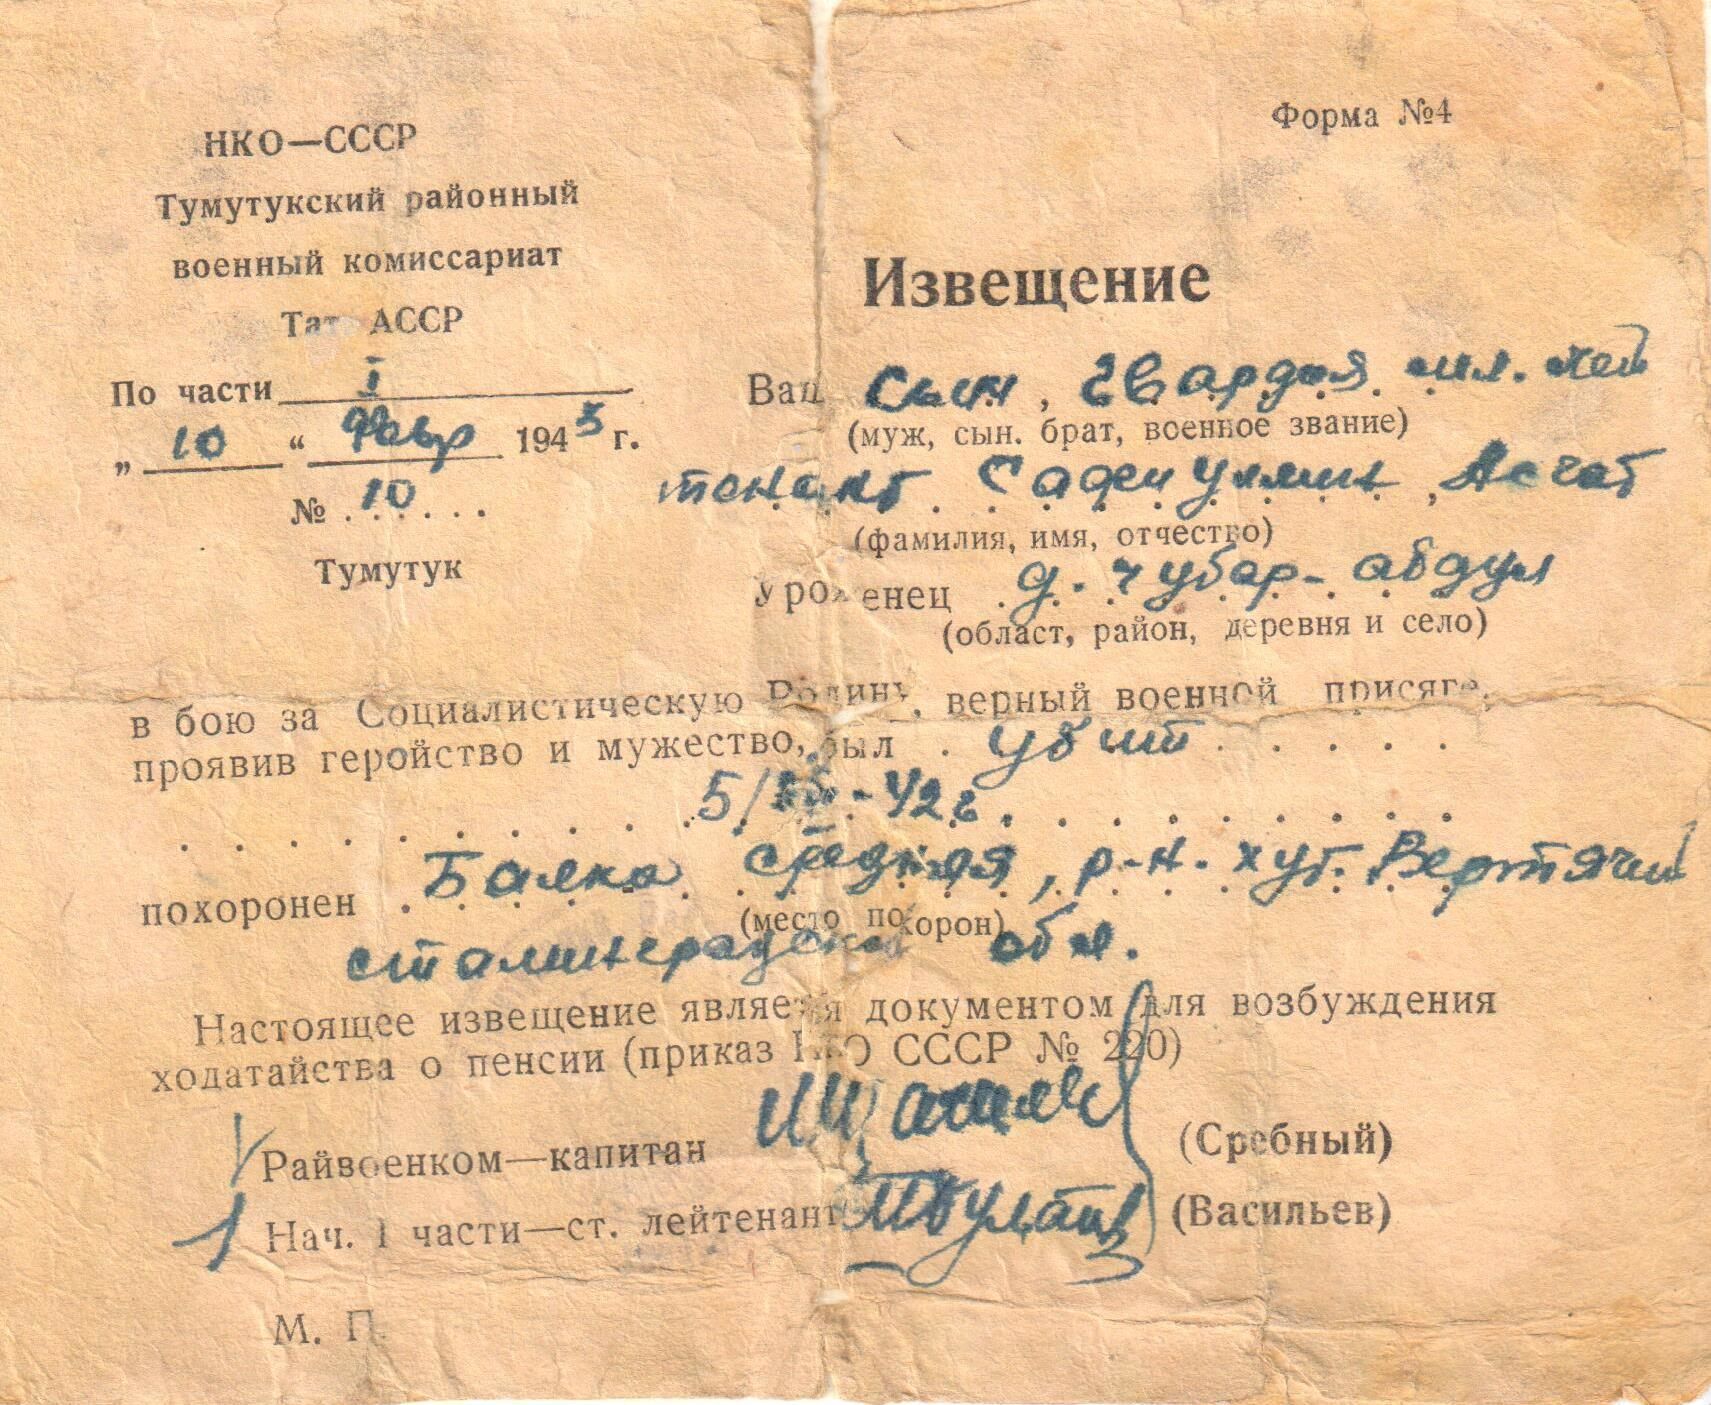 Форма №4
НКО—СССР
Тумутукский районный
военный комиссариат
Тат АССР
По части I
„ 10 “ февр 1943 г.
№ 10
Тумутук
Извещение
Ваш сын, гвардия мл. лей
(муж, сын. брат, военное звание)
тенант Сафиуллин, Асгат
(фамилия, имя, отчество)
Уроженец д. Чубар-абдул
(област, район, деревня и село)
в бою за Социалистическую Родину, верный военной присяге,
проявив геройство и мужество, был убит
42 г.
похоронен Балка средняя, р-н. хут. Вертячий
(место похорон)
сталинградской обл.
Настоящее извещение является документом для возбуждения
ходатайства о пенсии (приказ НКО СССР № 220)
Райвоенком—капитан (Сребный)
Нач. I части—ст. лейтенант (Васильев)
М. П.